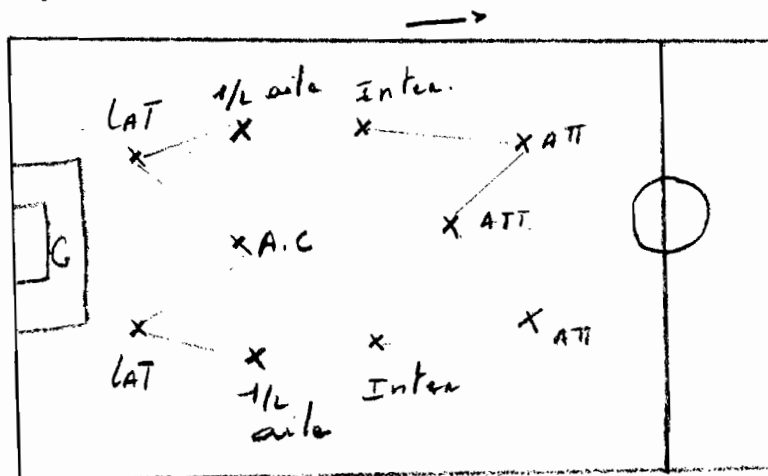 LAT
1/2 aile
Inter.
ATT
ATT.
G
A.C
ATT
LAT
1/2
aile
Inter